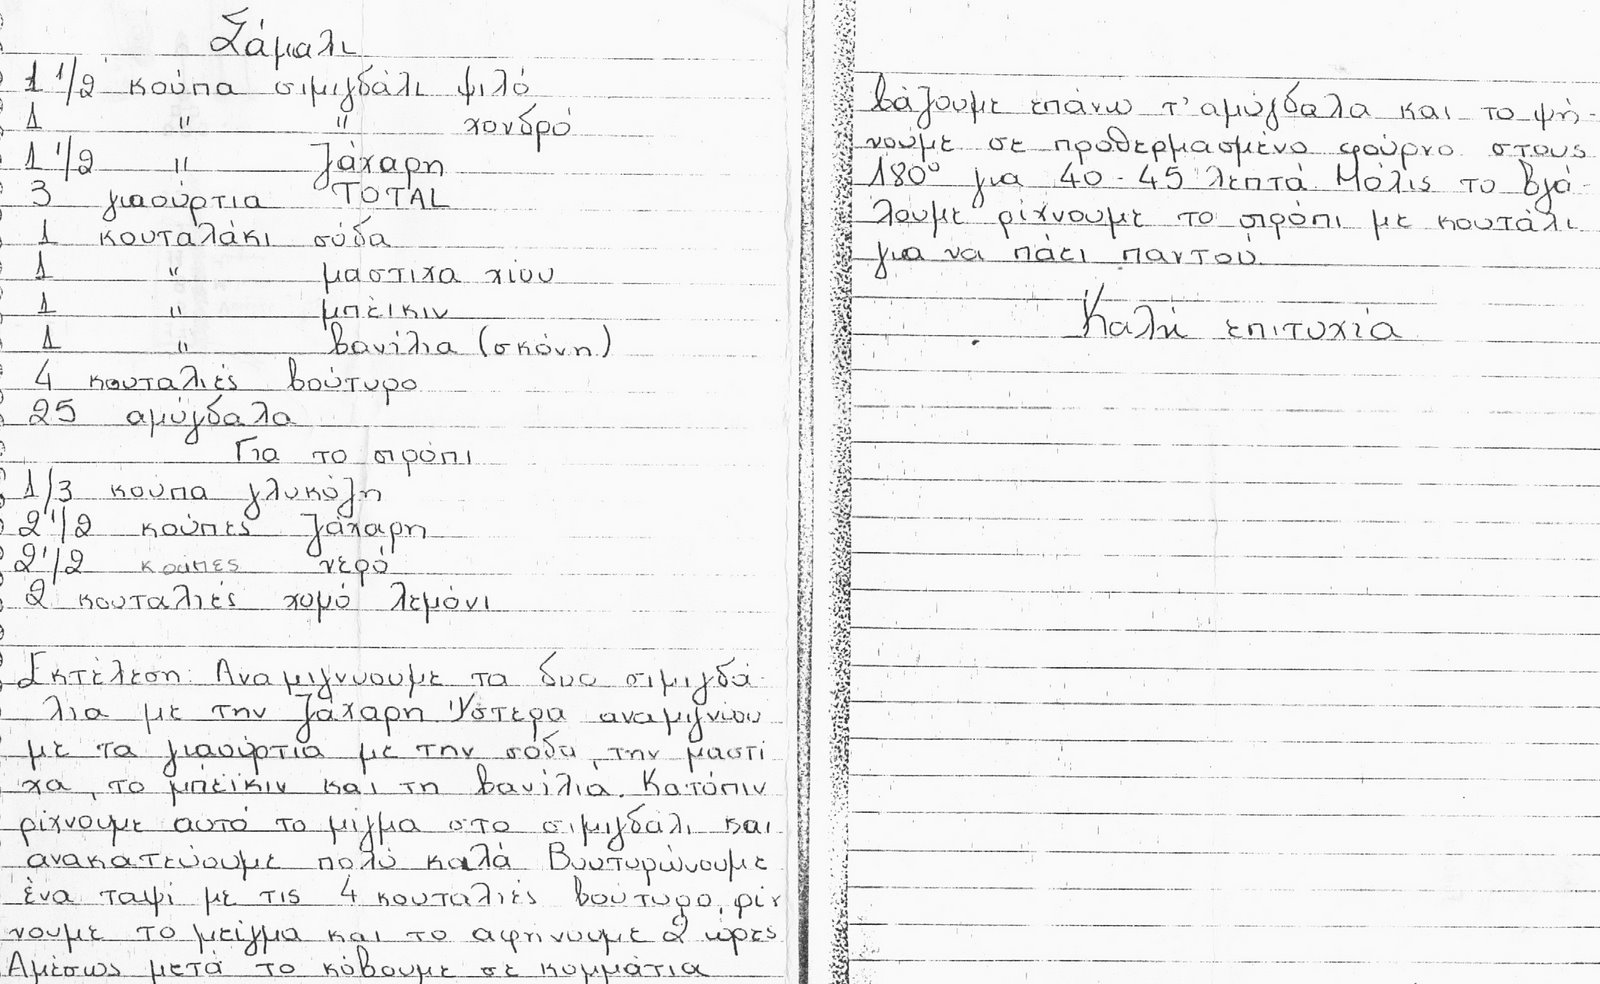 Σάμαλι
1 1/2 κούπα σιμιγδάλι ψιλό
1 " " χονδρό
1 1/2 " ζάχαρη
3 γιαούρτια TOTAL
1 κουταλάκι σόδα
1 " μαστιχα χίου
1 " μπέικιν
1 " βανίλια (σκόνη)
4 κουταλιές βούτυρο
25 αμύγδαλα
Για το σιρόπι
1/3 κούπα γλυκόζη
2 1/2 κούπες ζάχαρη
2 1/2 κούπες νερό
2 κουταλιές χυμό λεμόνι
Εκτέλεση: Αναμιγνύουμε τα δυο σιμιγδά-
λια με την ζάχαρη Ύστερα αναμιγνύου
με τα γιαούρτια με την σόδα, την μαστί
χα, το μπέικιν και τη βανίλιά. Κατόπιν
ρίχνουμε αυτό το μίγμα στο σιμιγδάλι και
ανακατεύουμε πολύ καλά Βουτυρώνουμε
ένα ταψί με τις 4 κουταλιές βούτυρο, ρίχ
νουμε το μείγμα και το αφήνουμε 2 ώρες
Αμέσως μετά το κόβουμε σε κομμάτια
βάζουμε επάνω τ' αμύγδαλα και το ψή-
νουμε σε προθερμασμένο φούρνο στους
180° για 40-45 λεπτά Μόλις το βγά-
λουμε ρίχνουμε το σιρόπι με κουτάλι
για να πάει παντού.
Καλή επιτυχία